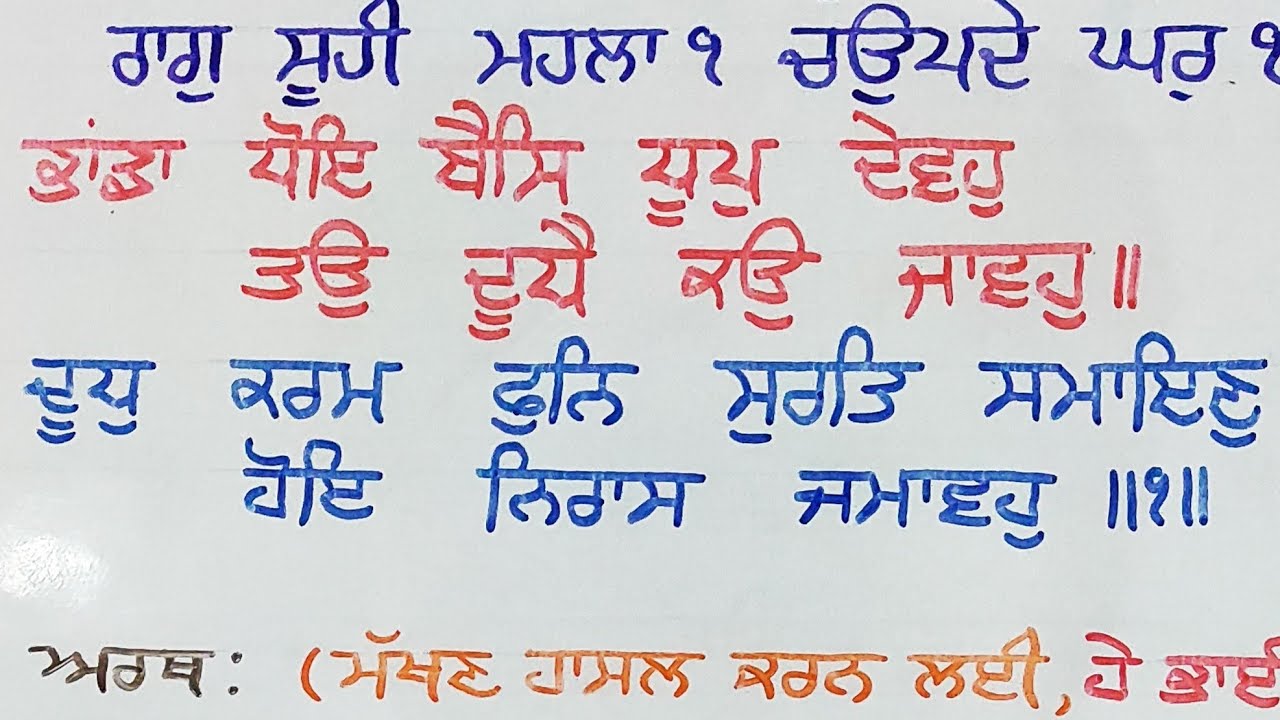 ਰਾਗੁ ਸੂਹੀ ਮਹਲਾ ੧ ਚਉਪਦੇ ਘਰੁ ੧
ਭਾਂਡਾ ਧੋਇ ਬੈਸਿ ਧੂਪੁ ਦੇਵਹੁ
ਤਉ ਦੂਧੈ ਕਉ ਜਾਵਹੁ॥
ਦੂਧੁ ਕਰਮ ਫੁਨਿ ਸੁਰਤਿ ਸਮਾਇਣੁ
ਹੋਇ ਨਿਰਾਸ ਜਮਾਵਹੁ ॥੧॥
ਅਰਥ: (ਮੱਖਣ ਹਾਸਲ ਕਰਨ ਲਈ, ਹੇ ਭਾਈ